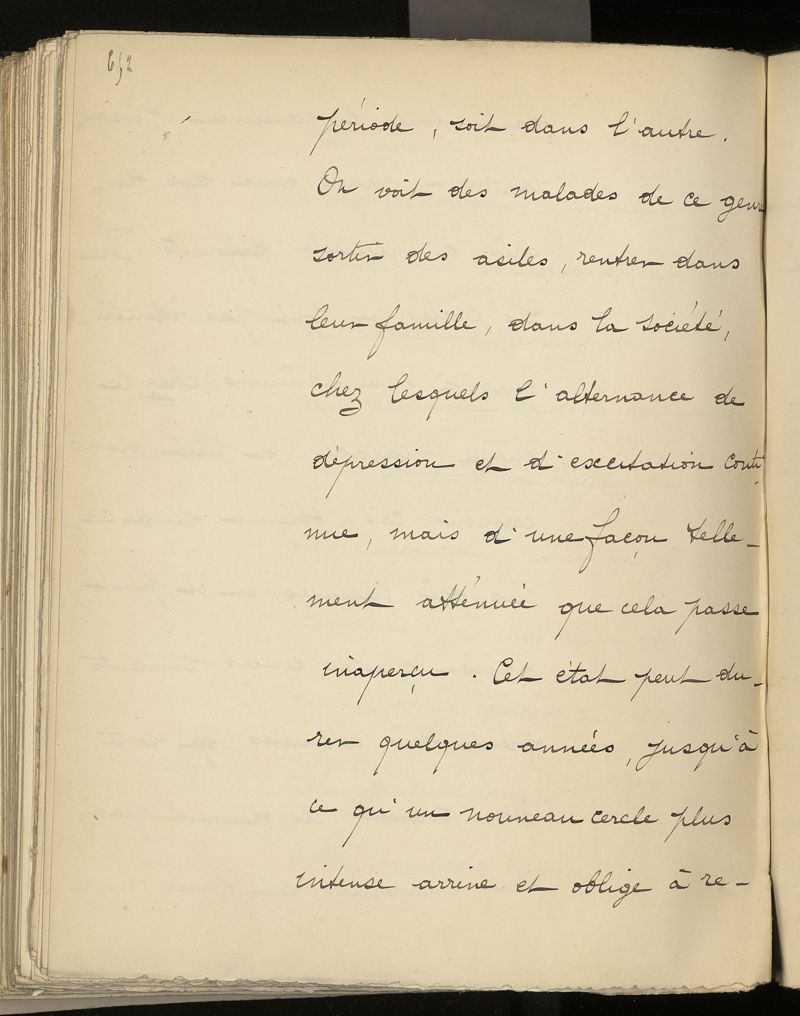 652
période, soit dans l'autre.
On voit des malades de ce genre
sortir des asiles, rentrer dans
leur famille, dans la société,
chez lesquels l'alternance de
dépression et d'excitation conti
nue, mais d'une façon telle-
ment atténuée que cela passe
inaperçu. Cet état peut du-
rer quelques années, jusqu'à
ce qu'un nouveau cercle plus
intense arrive et oblige à re-